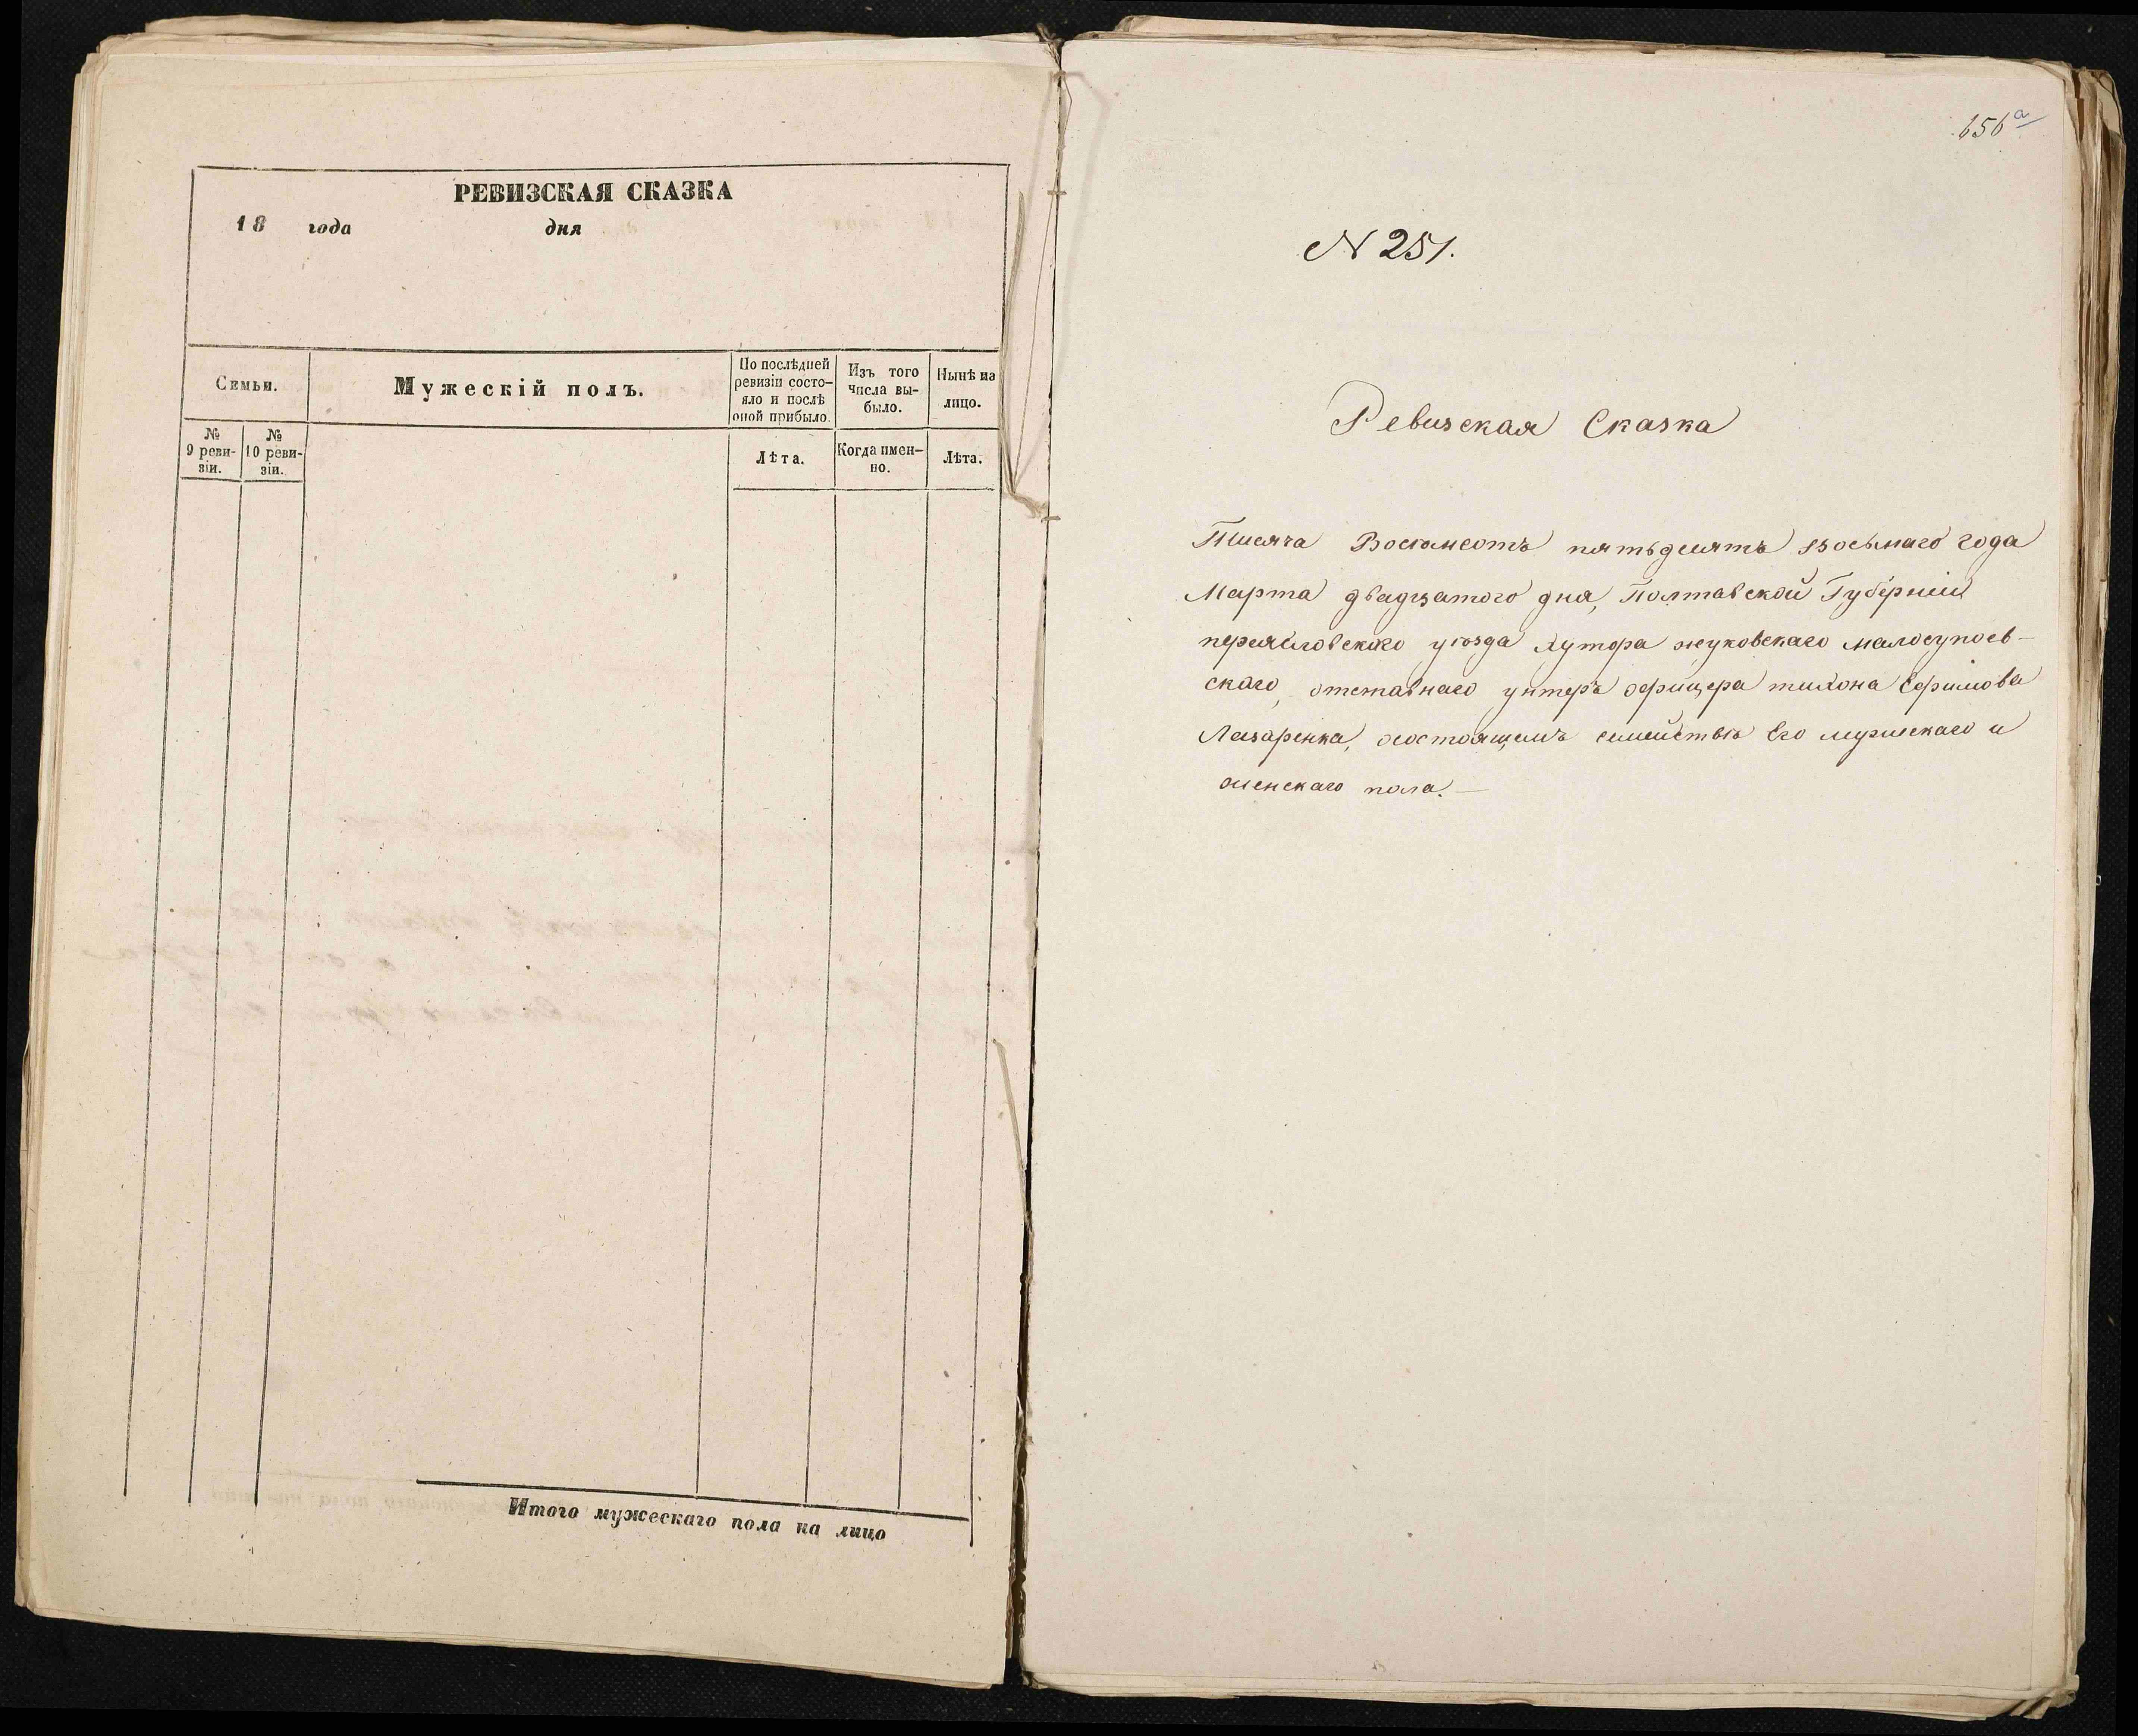 РЕВИЗСКАЯ СКАЗКА
18 года дня
Семьи.
Мужескій полъ.
По послѣдней
ревизіи состо-
яло и послѣ
оной прибыло.
Изъ того
числа вы-
было.
Нынѣ на
лицо.
№
9 реви-
зіи.
№
10 реви-
зіи.
Лѣта.
Когда имен-
но.
Лѣта.
Итого мужескаго пола на лицо
656 а
N 251.
Ревизская Сказка
Тисяча Восемсотъ пятьдесятъ восьмаго года
Марта двадцатого дня, Полтавской Губернии
переясловскаго уѣзда хутора жуковскаго малосупоев-
скаго, отставнаго унтеръ офицера тихона Ефимова
Лазаренка, осостоящемъ семействѣ Его мужескаго и
женскаго пола.—